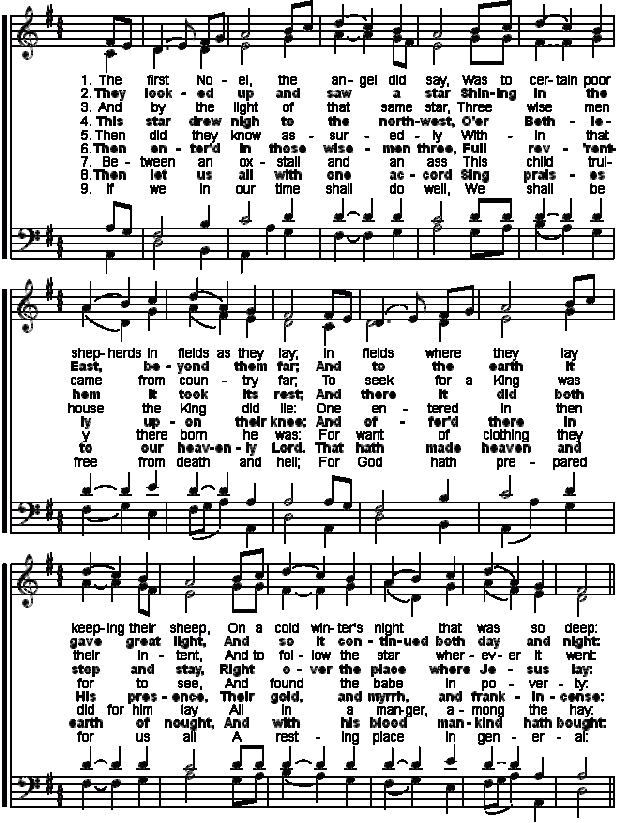 1. The first No - el, the an - gel did say, Was to cer - tain poor
2. They look - ed up and saw a star Shin - ing in the
3. And by the light of that same star, Three wise men
4. This star drew nigh to the north - west, O'er Beth - le -
5. Then did they know as - sur - ed - ly With - in that
6. Then en - ter'd in those wise - men three, Full rev - 'rent-
7. Be - tween an ox - stall and an ass This child tru-
8. Then let us all with one ac - cord Sing prais - es
9. If we in our time shall do well, We shall be
shep - herds in fields as they lay; In fields where they lay
East, be - yond them far; And to the earth it
came from coun - try far; To seek for a King was
hem it took its rest; And there it did both
house the King did lie: One en - tered in then
ly up - on their knee: And of - fer'd there in
y there born he was: For want of clothing they
to our heav - en - ly Lord. That hath made heaven and
free from death and hell; For God hath pre - pared
keep - ing their sheep, On a cold win - ter's night that was so deep:
gave great light, And so it con - tin - ued both day and night:
their in - tent, And to fol - low the star wher - ev - er it went:
stop and stay, Right o - ver the place where Je - sus lay:
for to see, And found the babe in po - ver - ty:
His pres - ence, Their gold, and myrrh, and frank - in - cense:
did for him lay All in a man - ger, a - mong the hay:
earth of nought, And with his blood man - kind hath bought:
for us all A rest - ing place in gen - er - al: